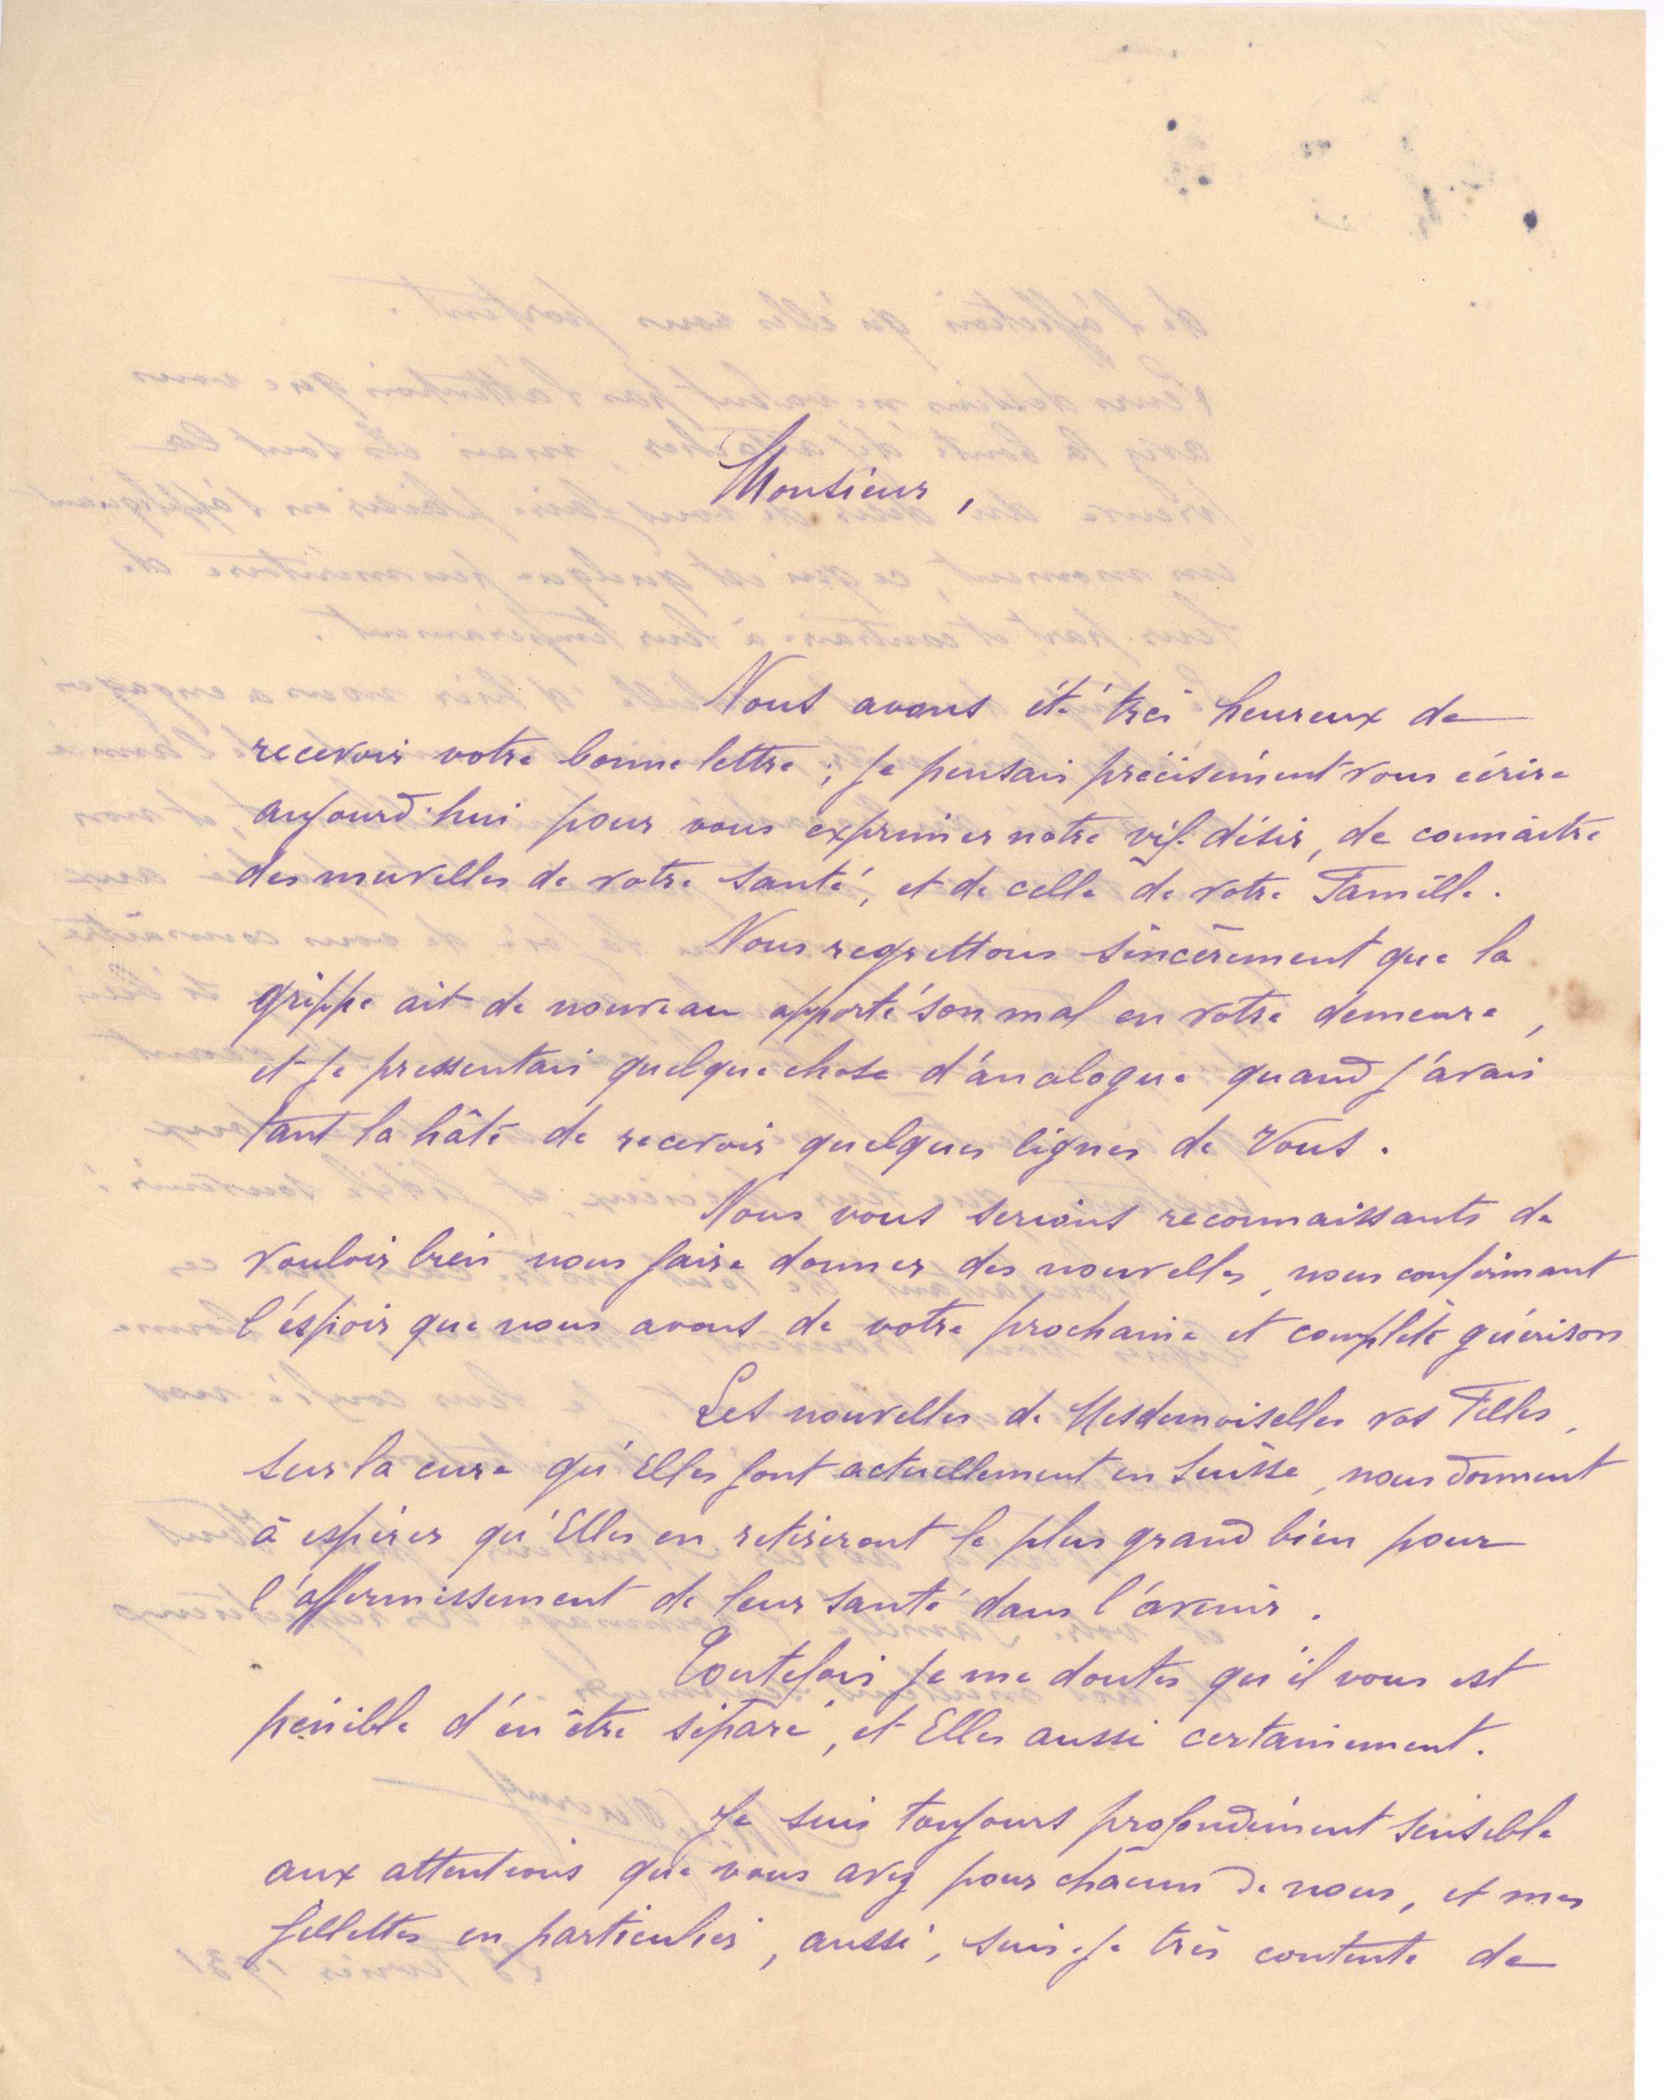 Monsieur,
Nous avons été très heureux de
recevoir votre bonne lettre ; je pensais précisément vous écrire
aujourd'hui pour vous exprimer notre vif désir, de connaître
des nouvelles de votre santé, et de celle de votre Famille.
Nous regrettons sincèrement que la
grippe ait de nouveau apporté son mal en votre demeure,
et je pressentais quelque chose d'analogue quand j'avais
tant la hâte de recevoir quelques lignes de Vous.
Nous vous serions reconnaissants de
vouloir bien nous faire donner des nouvelles, nous confirmant
l'espoir que nous avons de votre prochaine et complète guérison
Les nouvelles de Mesdemoiselles vos Filles,
sur la cure qu'Elles font actuellement en Suisse, nous donnent
à espérer qu'Elles en retireront le plus grand bien pour
l'affermissement de leur santé dans l'avenir.
Toutefois je me doutes qu'il vous est
pénible d'en être séparé, et Elles aussi certainement.
Je suis toujours profondément sensible
aux attentions que vous avez pour chacun de nous, et mes
fillettes en particulier, aussi, suis-je très contente de